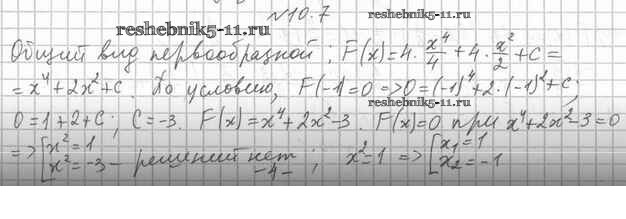 №10.7
reshebnik5-11.ru
Общий вид первообразной; F(x)=4·x⁴/4+4·x²/2+C=
=x⁴+2x²+C. По условию, F(-1)=0=>0=(-1)⁴+2·(-1)²+C;
reshebnik5-11.ru
0=1+2+C; C=-3. F(x)=x⁴+2x²-3. F(x)=0 при x⁴+2x²-3=0
=>[x²=1
x²=-3 - решений нет; x²=1 =>[x₁=1
x₂=-1
-4-
reshebnik5-11.ru